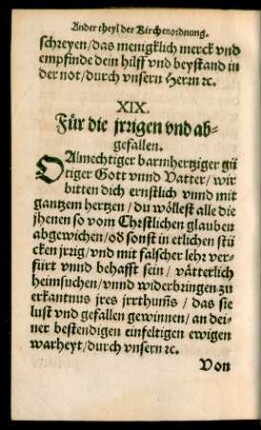 Ander theyl der Kirchenordnung.
schreyen/das menigklich merck vnd
empfinde dein hilff vnd beystand in
der not/durch vnsern Herrn ꝛc.
XIX.
Für die jrrigen vnd ab-
gefallen.
O Almechtiger barmhertziger gü
tiger Gott vnnd Vatter/wir
bitten dich ernstlich vnnd mit
gantzem hertzen/du wöllest alle die
jhenen so vom Christlichen glauben
abgewichen/oð sonst in etlichen stü
cken jrrig/vnd mit falscher lehr ver-
fürt vnnd behafft sein/vätterlich
heimsuchen/vnnd widerbringen zu
erkantnus jres jrrthums/das sie
lust vnd gefallen gewinnen/an dei-
ner bestendigen einfeltigen ewigen
warheyt/durch vnsern ꝛc.
Von